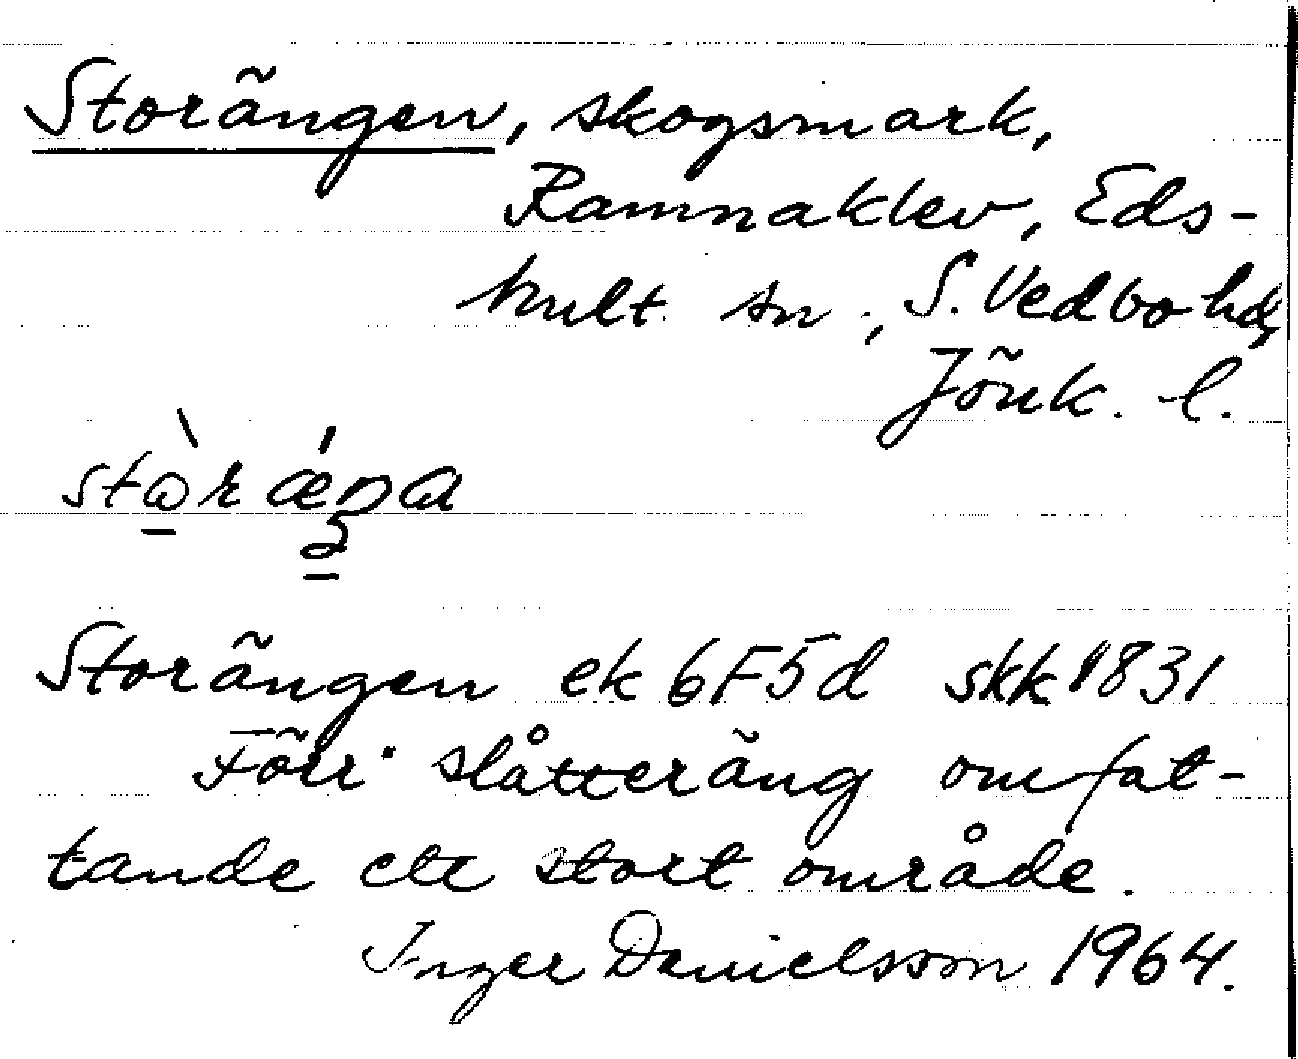 Storängen, skogsmark,
Ramnaklev, Eds-
hult sn, S. Vedbo hd,
Jönk. l.
Storängen ek 6F5d skk 1831
Förr slåtteräng omfat-
tande ett stort område.
Inger Danielsson 1964.